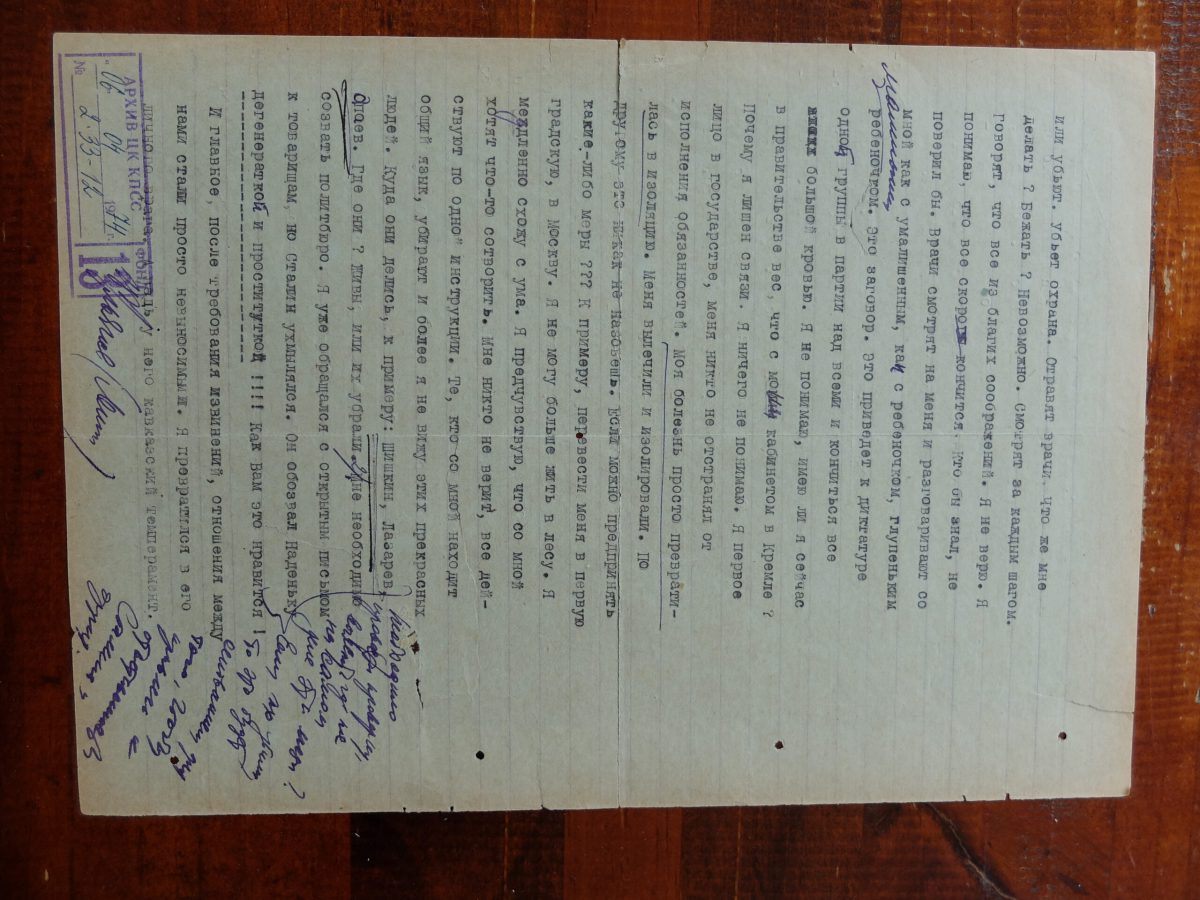 или убьют. убьет охрана. Отравят врачи. Что же мне
делать ? Бежать ? Невозможно. Смотрят за каждым шагом.
Говорят, что все из благих соображений. Я не верю. Я
понимаю, что все скоро кончится. Кто бы знал, не
поверил бы. Врачи смотрят на меня и разговаривают со
мной как с умалишенным, как с ребеночком, глупеньким
ребеночком. Это заговор. Это приведет к диктатуре
одной группы в партии над всеми и кончиться все
большой кровью. Я не понимаю, имею ли я сейчас
в правительстве вес, что с моим кабинетом в Кремле ?
Почему я лишен связи. Я ничего не понимаю. Я первое
лицо в государстве, меня никто не отстранял от
исполнения обязанностей. Моя болезнь просто преврати-
лась в изоляцию. Меня вылечили и изолировали. По
другому это никак не назовешь. Если можно предпринять
какие-либо меры ??? К примеру, перевести меня в первую
градскую, в Москву. Я не могу больше жить в лесу. Я
медленно схожу с ума. Я предчувствую, что со мной
хотят что-то сотворить. Мне никто не верит, все дей-
ствуют по одной инструкции. Те, кто со мной находит
общий язык, убирают и более я не вижу этих прекрасных
людей. Куда они делись, к примеру: Шишкин, Лазарев,
Где они ? Живы, или их убрали мне необходимо
созвать политбюро. Я уже обращался с открытым письмом
к товарищам, но Сталин ухмылялся. Он обозвал Наденьку
дегенераткой и проституткой !!!! Как Вам это нравится !
И главное, после требования извинений, отношения между
нами стали просто невыносимыми. Я превратился в его
личного врага. у него кавказский темперамент.
АРХИВ ЦК КПСС
№ 2-33-12